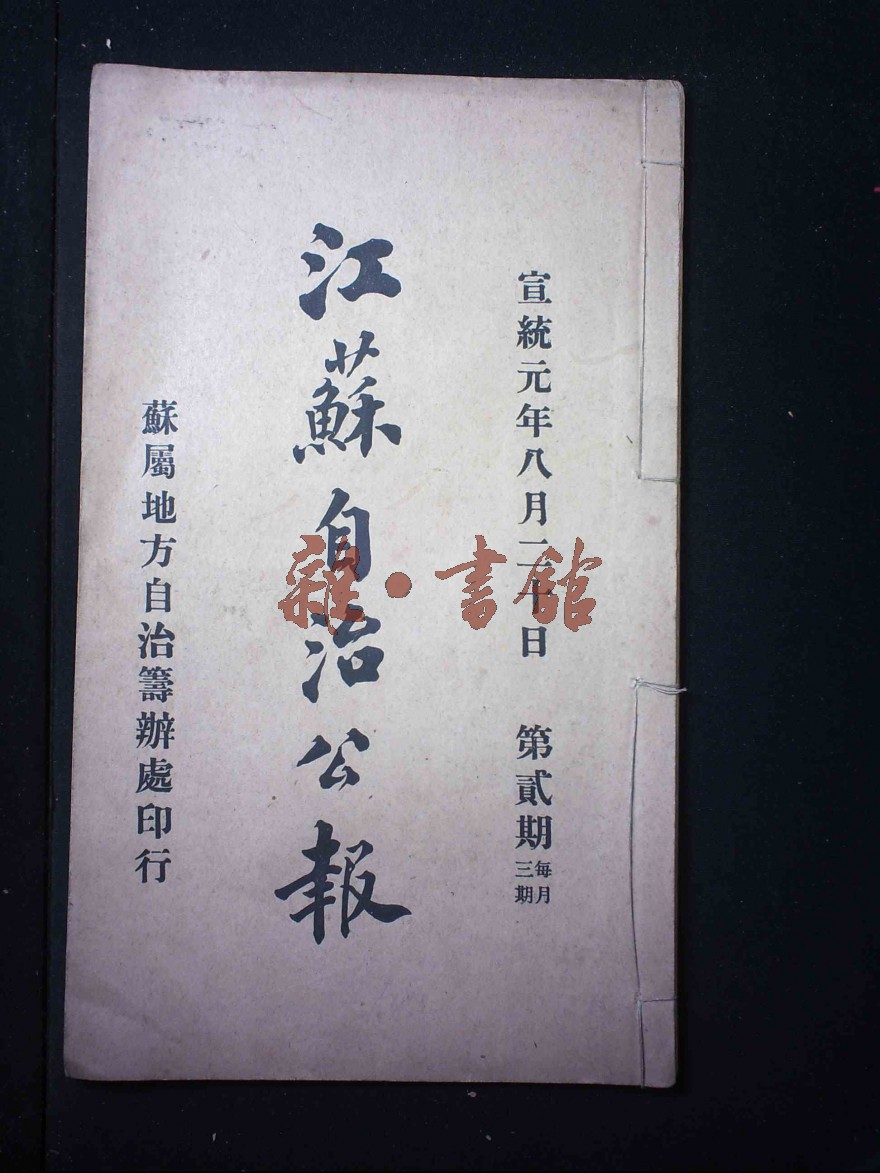 宣統元年八月二十日　第貳期 每月三期
江蘇自治公報
蘇屬地方自治籌辦處印行
雜·書館